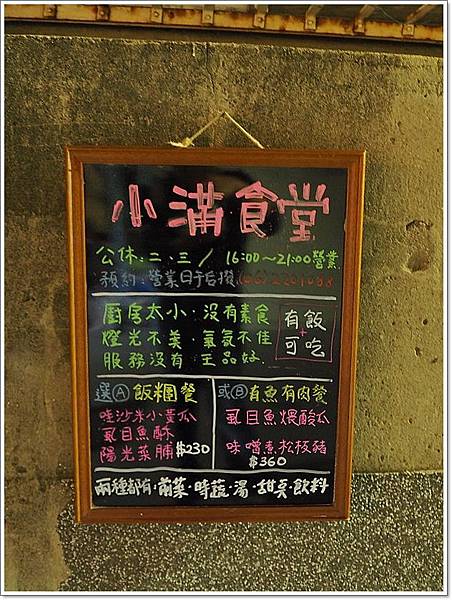 小滿食堂
公休:二、三/ 16:00~21:00營業
預約:營業日午后撥(06)2201088
廚房太小·沒有素食
燈光不美·氣氛不佳
服務沒有 王品好.
有飯
+
可吃
選Ⓐ飯糰餐
哇沙米小黃瓜
虱目魚酥
陽光菜脯$230
或Ⓑ有魚有肉餐
虱目魚煨醃瓜
味噌煮松板豬
$360
兩種都有·前菜·時蔬·湯·甜点·飲料